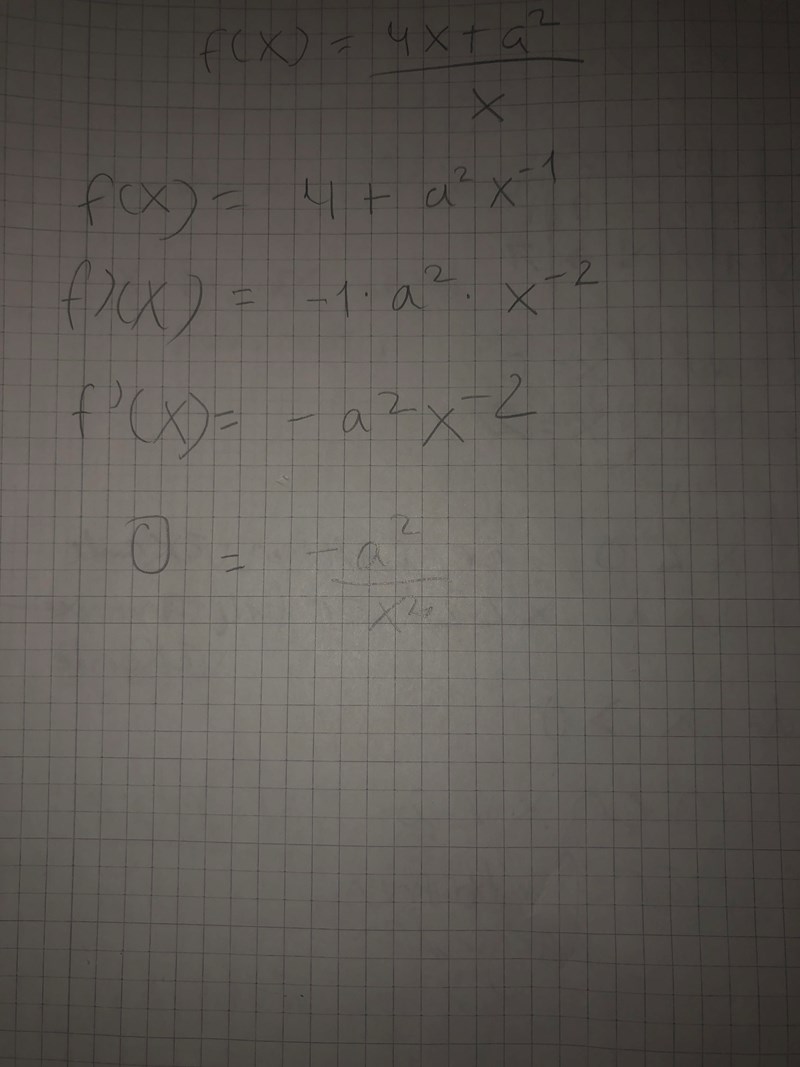 f(x) = (4x + a²)/x
f(x) = 4 + a² x⁻¹
f'(x) = -1 · a² · x⁻²
f'(x) = - a² x⁻²
0 = -a²/x²